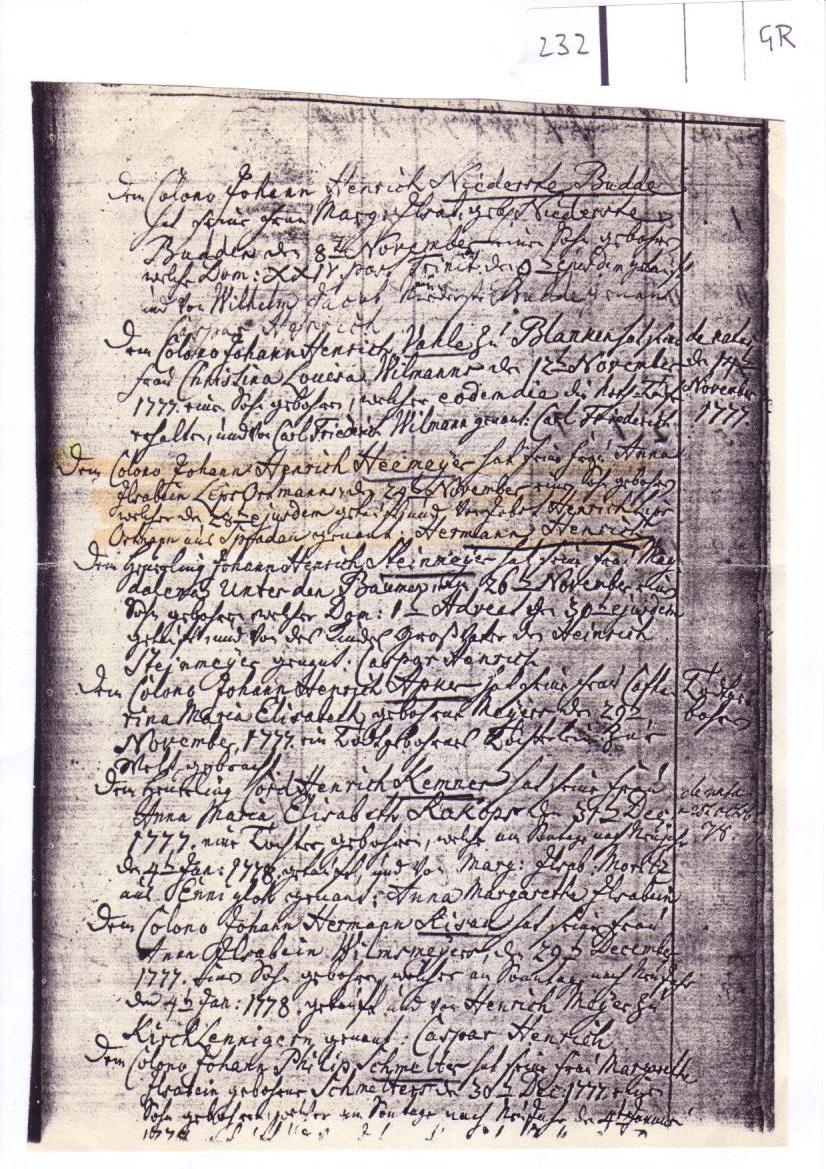 232 GR
Dem Colono Johann Henrich Niederste Budde
hat seine Frau Marg: Ilsab. geb. Niederste
Budden den 8ten November einen Sohn gebohren
welcher Dom: XXIV post Trinit: den 9ten ejusdem getauft
und von Wilhelm Jacob Niederste Budde genannt
Caspar Heinrich
Dem Colono Johann Henrich Vahle zu Blanken hat seine de natus
Frau Christina Lovera Wilmanns den 12ten November den 14ten
1777. einen Sohn gebohren, welcher eodem die die November
erhalten, und von Carl Friederich Wilmann genant: Carl Friederich 1777.
Dem Colono Johann Henrich Heemeyer hat seine Frau Anna
Ilsabein Ortmanns den 24ten November einen Sohn gebohren
welcher den 28ten ejusdem getauft und von Henrich
Ortmann aus Spradau genant: Hermann Henrich
Dem Heuerling Johann Henrich Steinmeyer hat seine Frau Mag-
dalena Unter den Baumen den 26ten November einen
Sohn gebohren welcher Dom: 1ten Advent den 30ten ejusdem
getauft und von des Kindes Großvater den Heinrich
Steinmeyer genant: Caspar Henrich
Dem Colono Johann Henrich hat seine Frau Catha- Todtge-
rina Maria Elisabeth gebohrne Meyers den 29ten bohren
November 1777. ein Todtgebohrnes Töchterlein zur
Welt gebracht
Dem Heuerling Jörd Henrich Kemner hat seine Frau
Anna Maria Elisabeth Kakops den 31ten Dec:
1777. eine Tochter gebohren, welche am Sontage nach Neujahr 78.
den 4ten Jan: 1778. getauft, und von Marg: Ilsab. Moritz
aus Ennigloh genant: Anna Margaretha Ilsabein
Dem Colono Johann Hermann Kisau hat seine Frau
Anna Ilsabein Wilmsmeyers den 29ten December
1777. einen Sohn gebohren, welcher am Sonntag nach Neujahr
den 4ten Jan: 1778. getauft und von Henrich Meyer zu
Kirchlennigern genant: Caspar Henrich
Dem Colono Johann Philip Schmelter hat seine Frau Margareth
Ilsabein gebohrne Schmelters den 30ten Dec: 1777. einen
Sohn gebohren, welcher am Sontage nach Neujahr den 4ten Januar